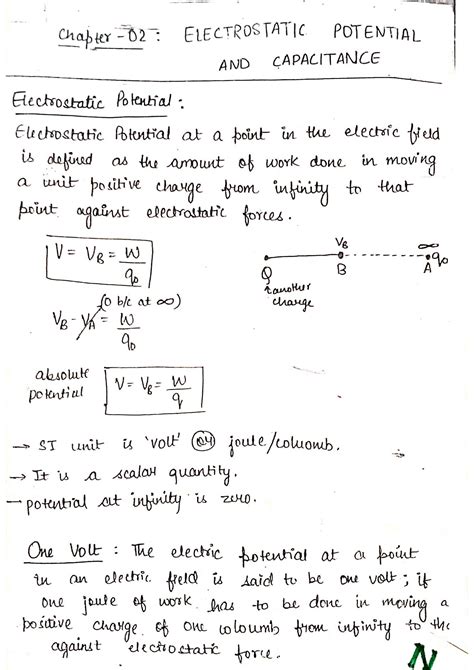 Chapter-02: ELECTROSTATIC POTENTIAL
AND CAPACITANCE
Electrostatic Potential:
Electrostatic Potential at a point in the electric field
is defined as the amount of work done in moving
a unit positive charge from infinity to that
point against electrostatic forces.
V = V_B = W/q₀
V_B ∞
Q B A q₀
another
charge
(0 b/c at ∞)
V_B - V_A = W/q₀
absolute
potential
V = V_B = W/q
→ SI unit is 'volt' or joule/coluomb.
→ It is a scalar quantity.
- potential at infinity is zero.
One Volt : The electric potential at a point
in an electric field is said to be one volt; if
one joule of work has to be done in moving a
positive charge of one coloumb from infinity to the
against electrostatic force.
N